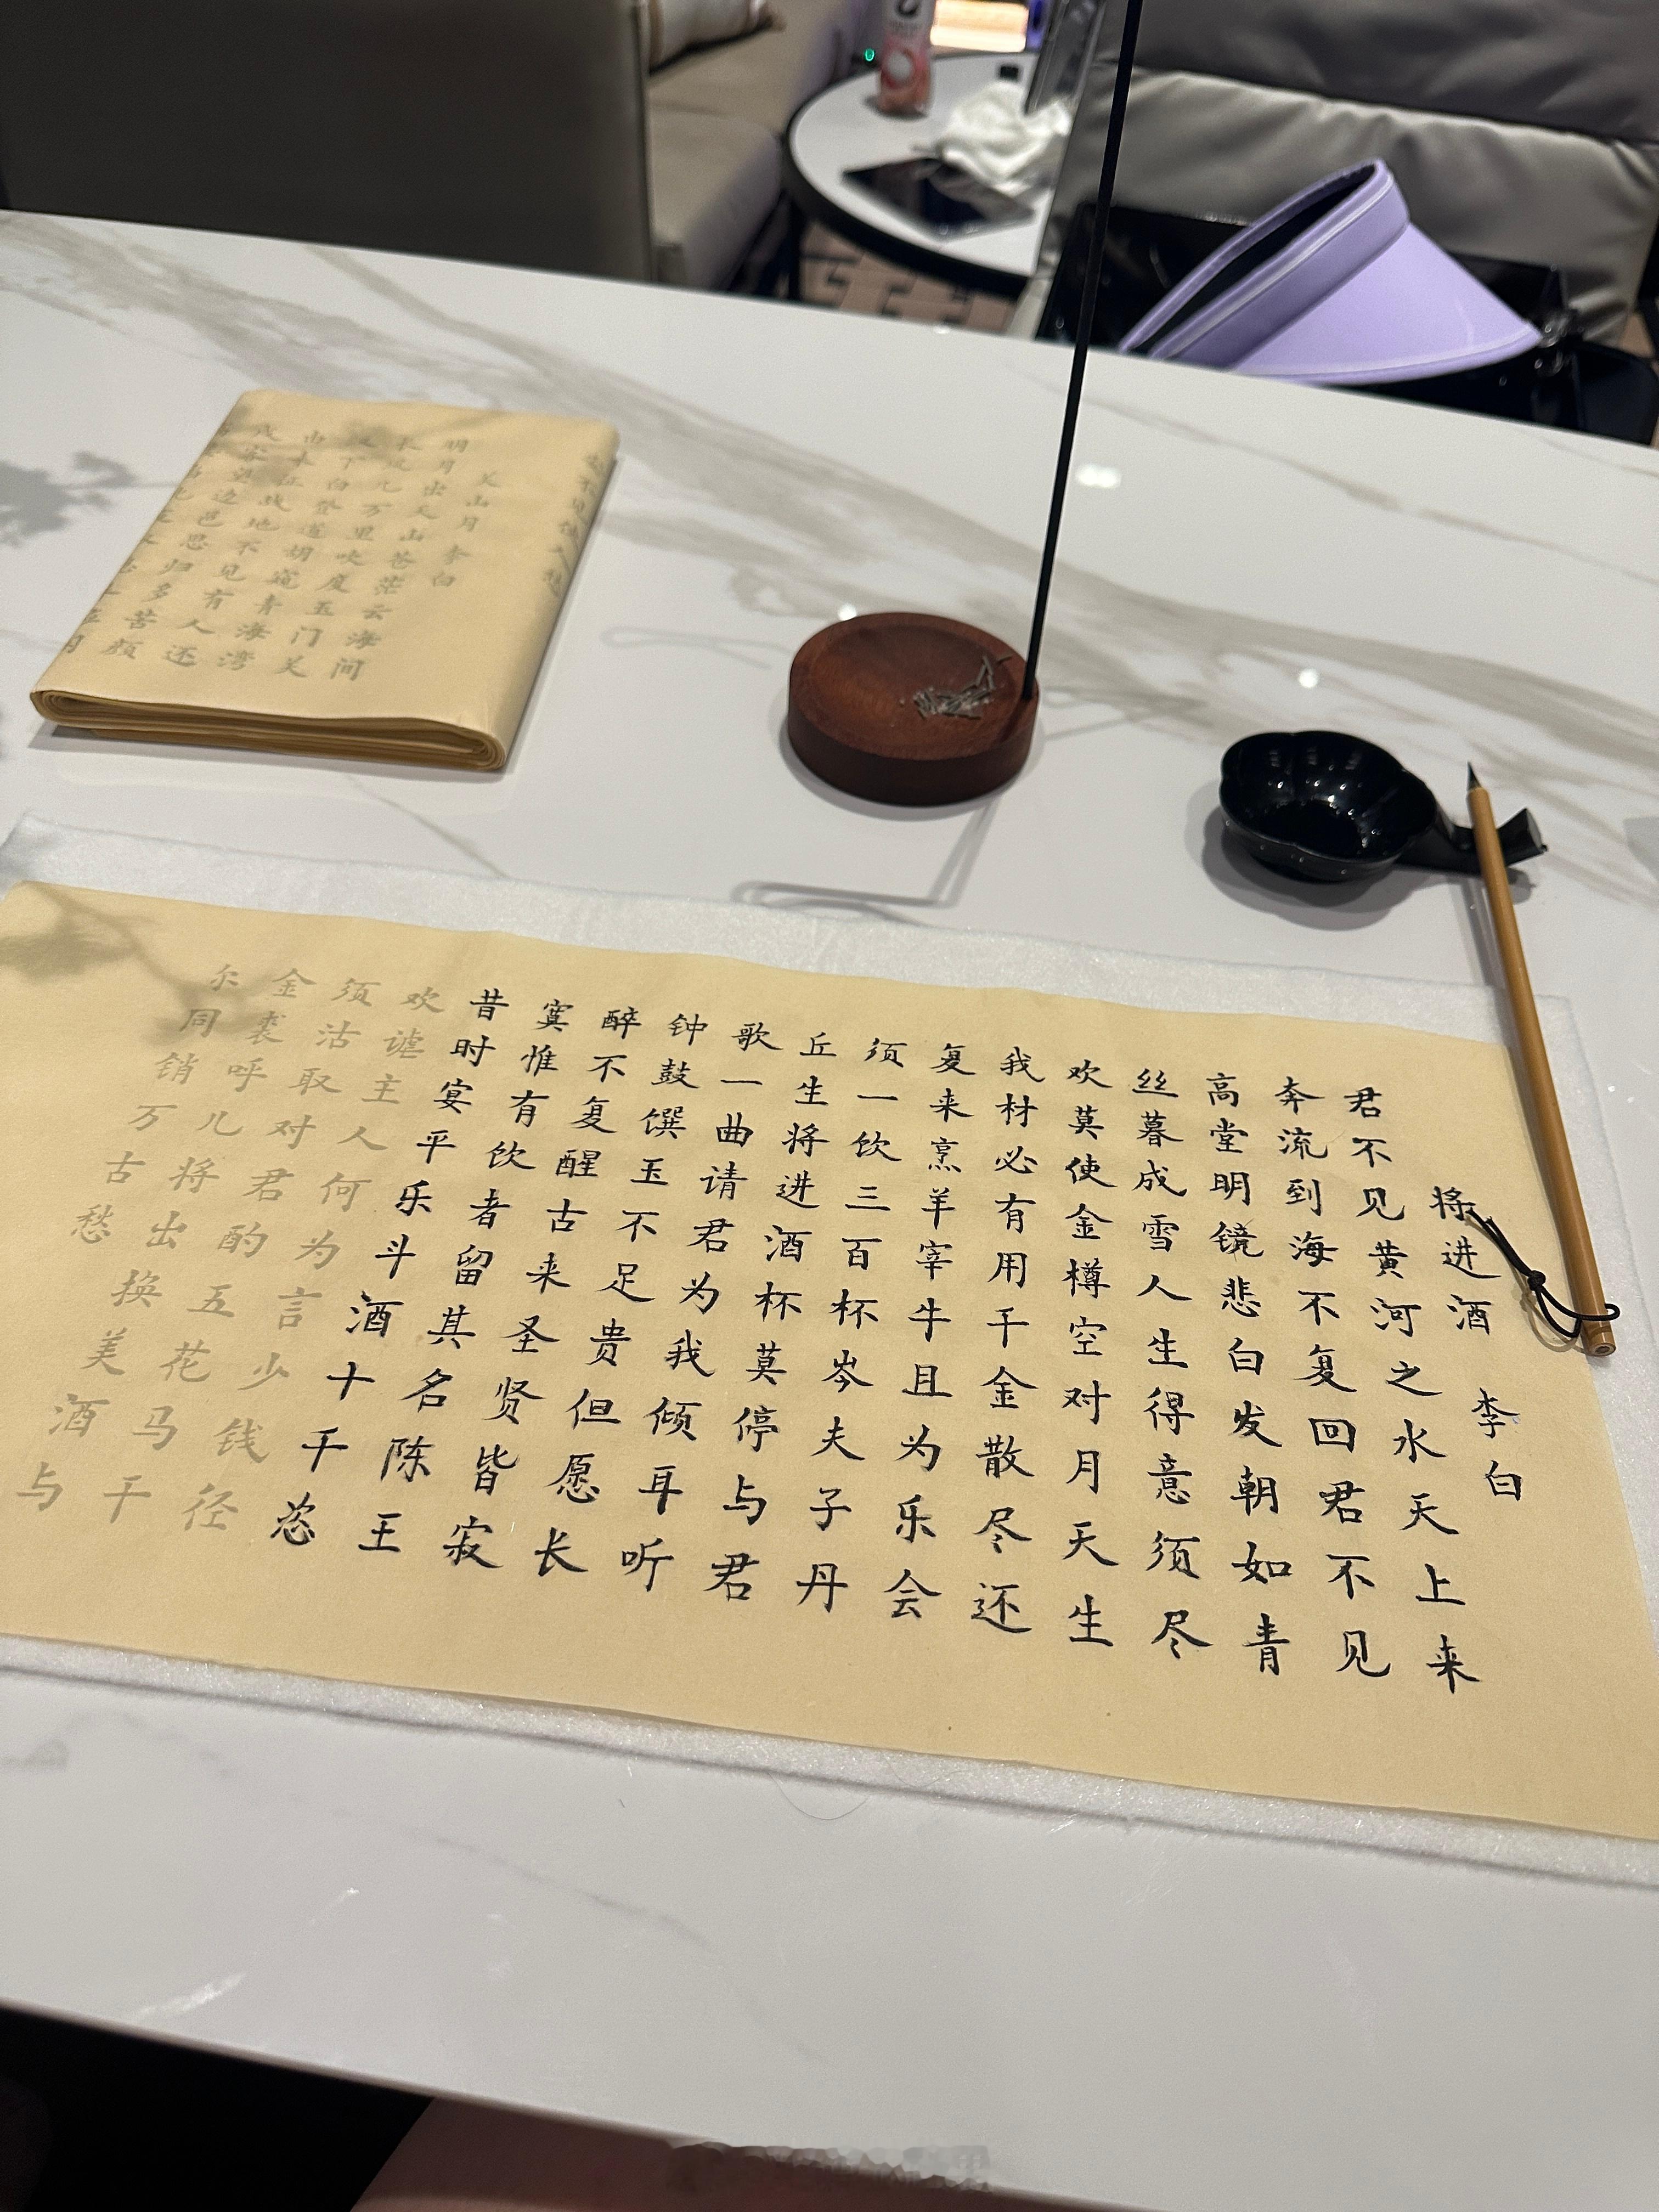 关山月 李白
明月出天山苍茫云海间
长风几万里吹度玉门关
汉下白登道胡窥青海湾
由来征战地不见有人还
戍客望边邑思归多苦颜
将进酒 李白
君不见黄河之水天上来
奔流到海不复回君不见
高堂明镜悲白发朝如青
丝暮成雪人生得意须尽
欢莫使金樽空对月天生
我材必有用千金散尽还
复来烹羊宰牛且为乐会
须一饮三百杯岑夫子丹
丘生将进酒杯莫停与君
歌一曲请君为我倾耳听
钟鼓馔玉不足贵但愿长
醉不复醒古来圣贤皆寂
寞惟有饮者留其名陈王
昔时宴平乐斗酒十千恣
欢谑主人何为言少钱径
须沽取对君酌五花马千
金裘呼儿将出换美酒与
尔同销万古愁